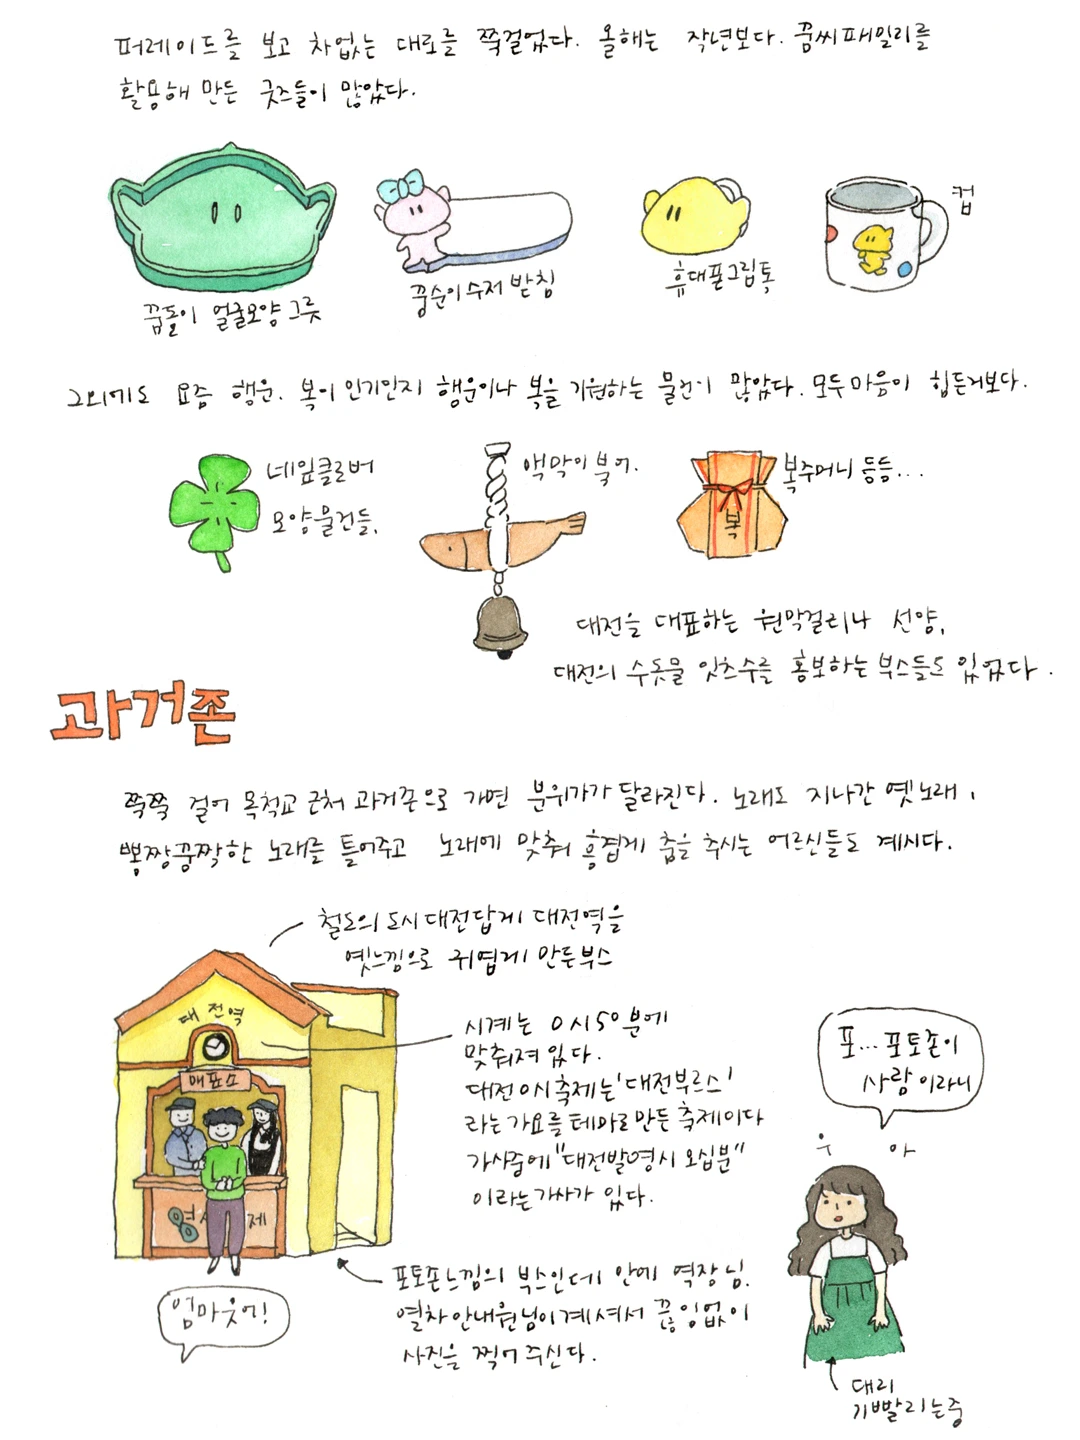 퍼레이드를 보고 차없는 대로를 쭉걸었다. 올해는 작년보다. 꿈씨패밀리를
활용해 만든 굿즈들이 많았다.
꿈돌이 얼굴모양 그릇
꿈순이 수저 받침
휴대폰그립톡
컵
그외에도 요즘 행운. 복이 인기인지 행운이나 복을 기원하는 물건이 많았다. 모두 마음이 힘든가보다.
네잎클로버
모양물건들,
액막이 북어.
복
복주머니 등등...
대전을 대표하는 원막걸리나 선양,
대전의 수돗물 잇츠수를 홍보하는 부스들도 있었다.
과거존
쭉쭉 걸어 목척교 근처 과거존으로 가면 분위기가 달라진다. 노래도 지나간 옛노래,
뽕짱꿍짝한 노래를 틀어주고 노래에 맞춰 흥겹게 춤을 추시는 어르신들도 계시다.
철도의 도시 대전답게 대전역을
옛느낌으로 귀엽게 만든부스
대전역
매표소
시계는 0시50분에
맞춰져 있다.
대전0시축제는 '대전부르스'
라는 가요를 테마로 만든 축제이다
가사중에 "대전발영시 오십분"
이라는 가사가 있다.
포토존느낌의 부스인데 안에 역장님.
열차안내원님이 계셔서 끊임없이
사진을 찍어 주신다.
엄마웃어!
포... 포토존이
사람이라니
우 아
대리
기빨리는중